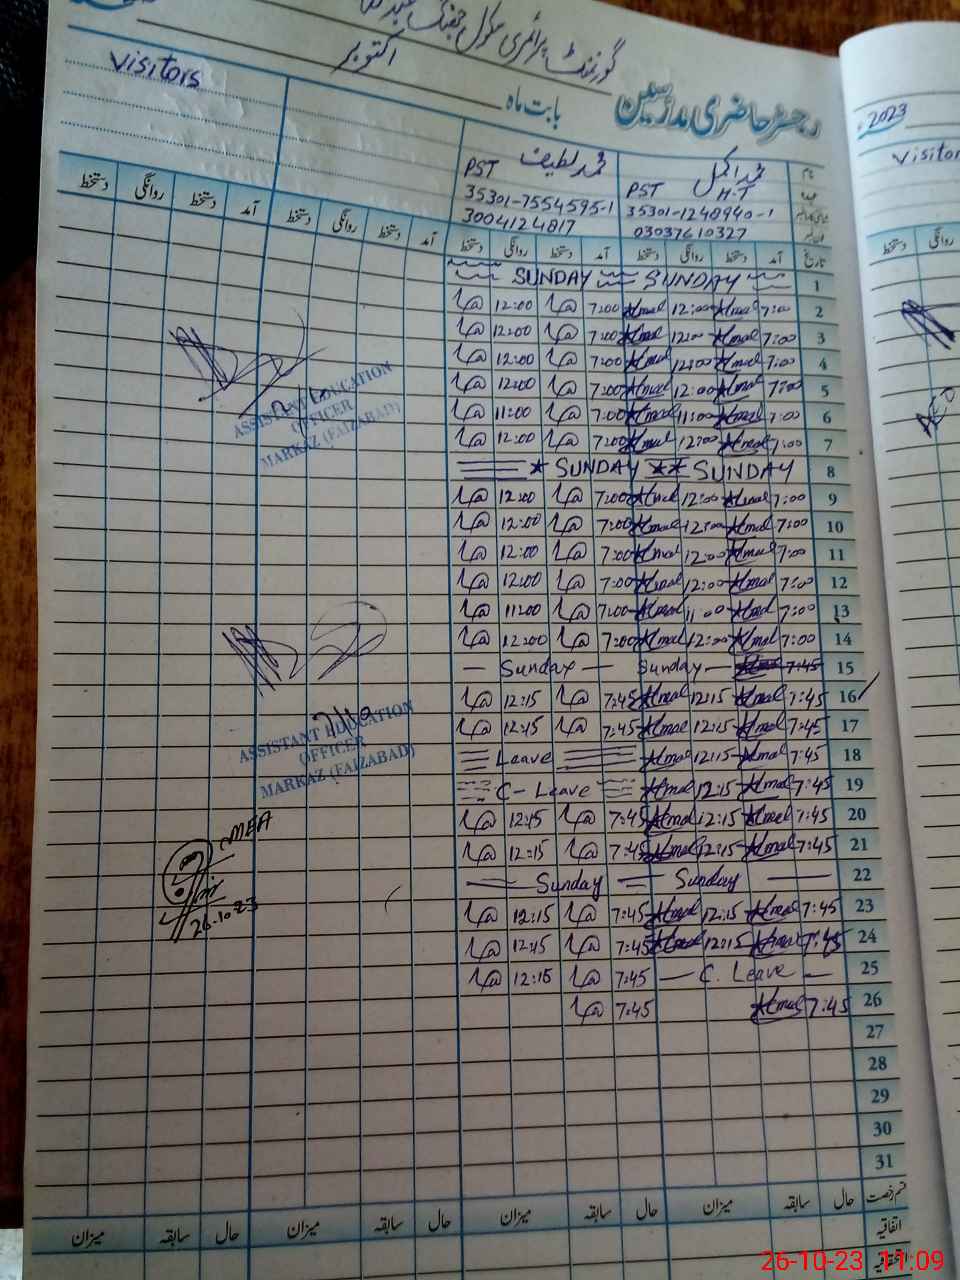 گورنمنٹ پرائمری سکول
اکتوبر
Visitors
رجسٹر حاضری مدرسین
بابت ماہ
2023
Visitor
نام
محمد اکمل
محمد لطیف
PST H-T
PST
35301-1248940-1
35301-7554595-1
03037610327
3004124817
تاریخ آمد دستخط روانگی دستخط آمد دستخط روانگی دستخط آمد دستخط روانگی دستخط آمد دستخط روانگی دستخط
روانگی دستخط
1 SUNDAY SUNDAY
2 7:00 Akmal 12:00 Akmal 7:00 12:00
3 7:00 Akmal 12:00 Akmal 7:00 12:00
4 7:00 Akmal 12:00 Akmal 7:00 12:00
5 7:00 Akmal 12:00 Akmal 7:00 12:00
6 7:00 Akmal 11:00 Akmal 7:00 11:00
7 7:00 Akmal 12:00 Akmal 7:00 12:00
8 SUNDAY SUNDAY
9 7:00 Akmal 12:00 Akmal 7:00 12:00
10 7:00 Akmal 12:00 Akmal 7:00 12:00
11 7:00 Akmal 12:00 Akmal 7:00 12:00
12 7:00 Akmal 12:00 Akmal 7:00 12:00
13 7:00 Akmal 11:00 Akmal 7:00 11:00
14 7:00 Akmal 12:00 Akmal 7:00 12:00
15 7:45 Akmal Sunday Sunday
16 7:45 Akmal 12:15 Akmal 7:45 12:15
17 7:45 Akmal 12:15 Akmal 7:45 12:15
18 7:45 Akmal 12:15 Akmal Leave
19 7:45 Akmal 12:15 Akmal C-Leave
20 7:45 Akmal 12:15 Akmal 7:45 12:15
21 7:45 Akmal 12:15 Akmal 7:45 12:15
22 Sunday Sunday
23 7:45 Akmal 12:15 Akmal 7:45 12:15
24 7:45 Akmal 12:15 Akmal 7:45 12:15
25 C. Leave 7:45 12:15
26 7:45 Akmal 7:45
27
28
29
30
31
ASSISTANT EDUCATION
OFFICER
MARKAZ (FAIZABAD)
ASSISTANT EDUCATION
OFFICER
MARKAZ (FAIZABAD)
MEA
26-10-23
AEO
قسم رخصت حال سابقہ میزان حال سابقہ میزان حال سابقہ میزان حال سابقہ میزان
اتفاقیہ
26-10-23 11:09